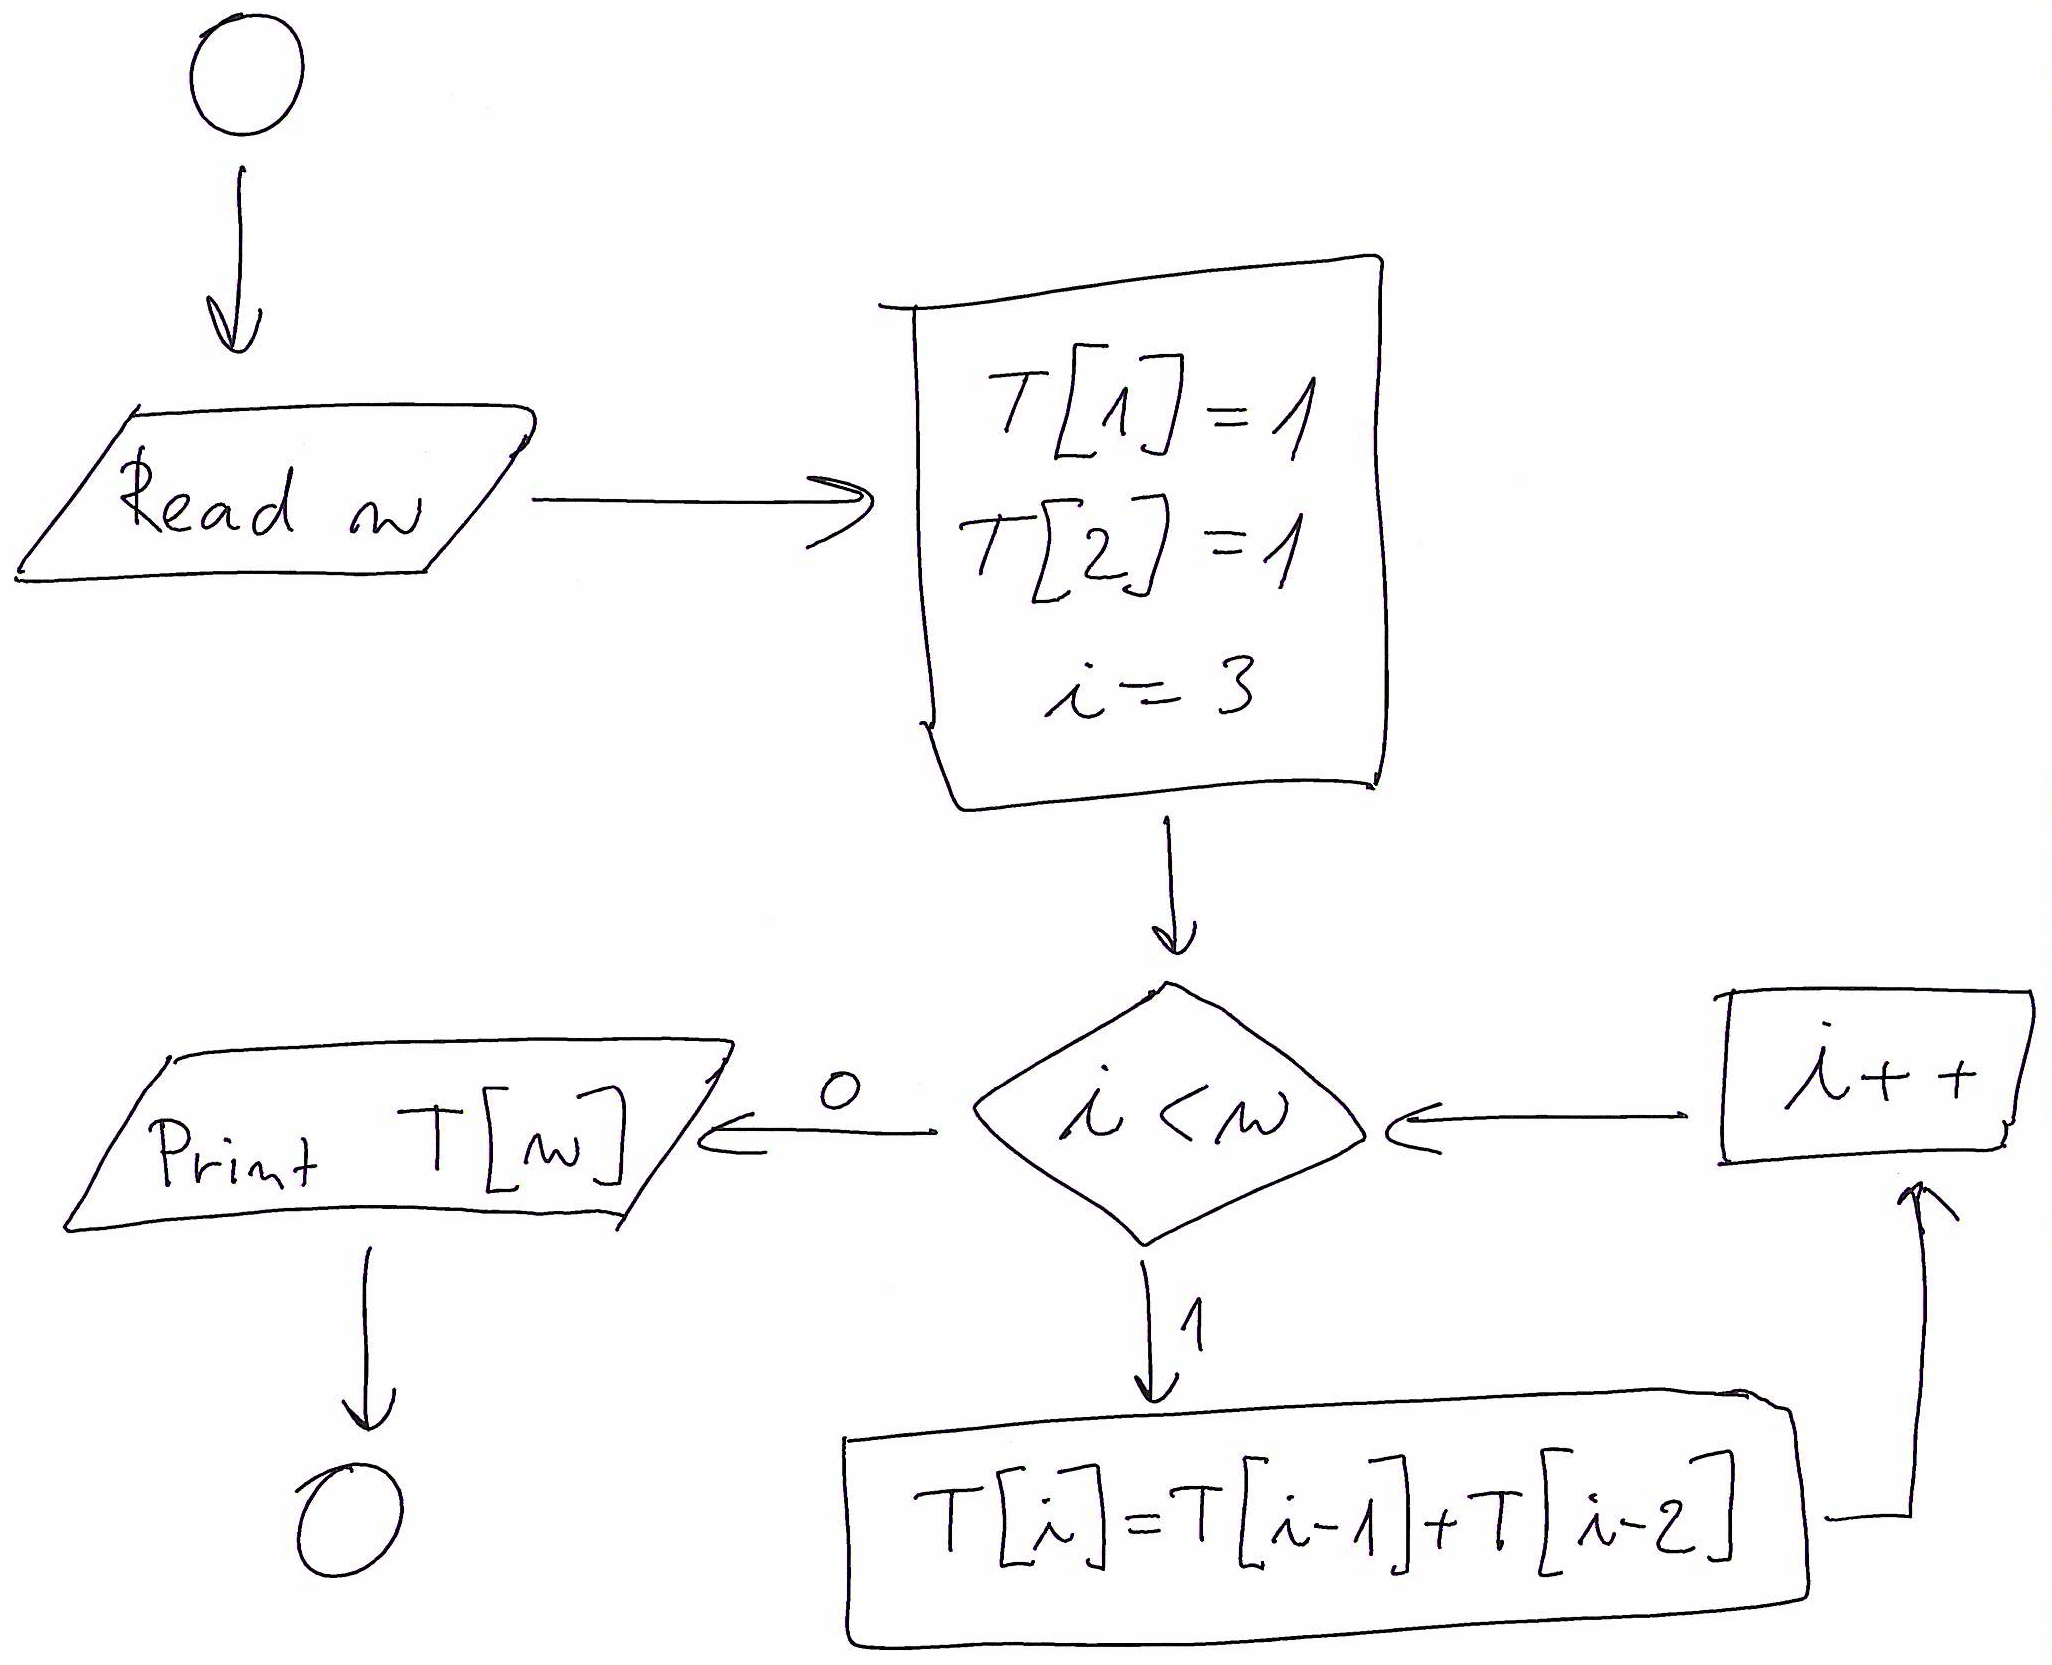 Read n
T[1] = 1
T[2] = 1
i = 3
i < n
i++
0
Print T[n]
1
T[i] = T[i-1] + T[i-2]